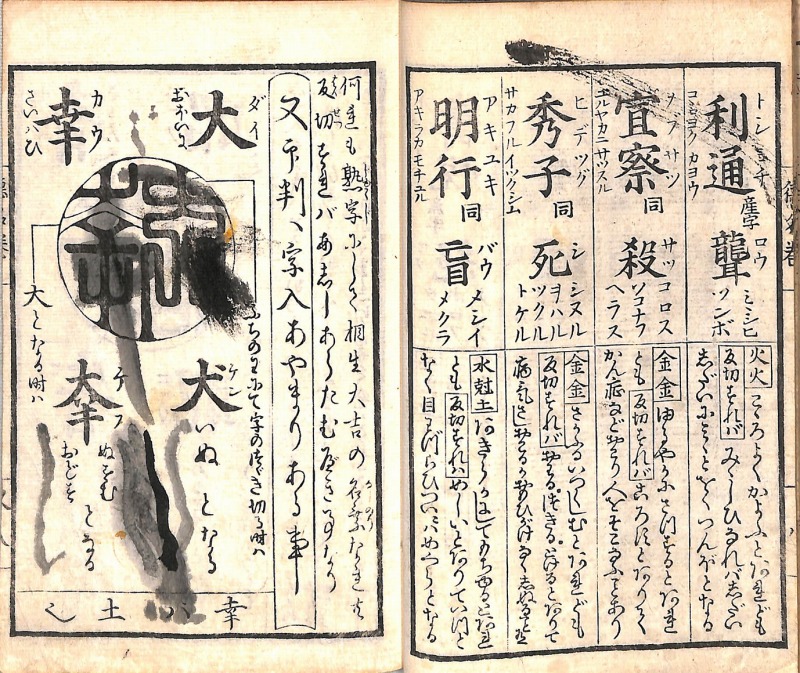 トシミチ
利通 産字
コヽロヨクカヨウ
聾 ロウ
ミヽシヒ
ツンボ
火火 こゝろよくかよふとなれども
反切すればみゝしひなればしだい
しだいにミゝとをくつんぼとなる
ノブサツ
宜察 同
ユルヤカニサツスル
殺 サツ
コロス
ソコナフ
ヘラス
金金 ゆるやかにさつするとなれ
とも反切すればころすとなりて
かん症などおこり人をそこなふことあり
ヒデツグ
秀子 同
サカフルイツクシム
死 シ
シヌル
ヲハル
ツクル
トケル
金金 さかふるいつくしむとなれども
反切すればおはるつきるとけるとなりて
アキユキ
明行 同
アキラカモチユル
盲 バウ
メシイ
メクラ
水尅土 あきらかにしてもちゆるとなれ
とも反切すればめしいとなりていつと
なく目をわづらひついにハめくらとなる
何連も熟字にして相生大吉の名字なれ共
反切すればあしゝあらたむべき事なり
又印判ノ字入あやまりある事
大 ダイ
おおいに
幸 カウ
さいハひ
ふちのわにて字のつゞき切る時ハ
犬 ケン
いぬとなる
大となる時ハ
ぬすむ
おどす
となる
幸ハ土へ